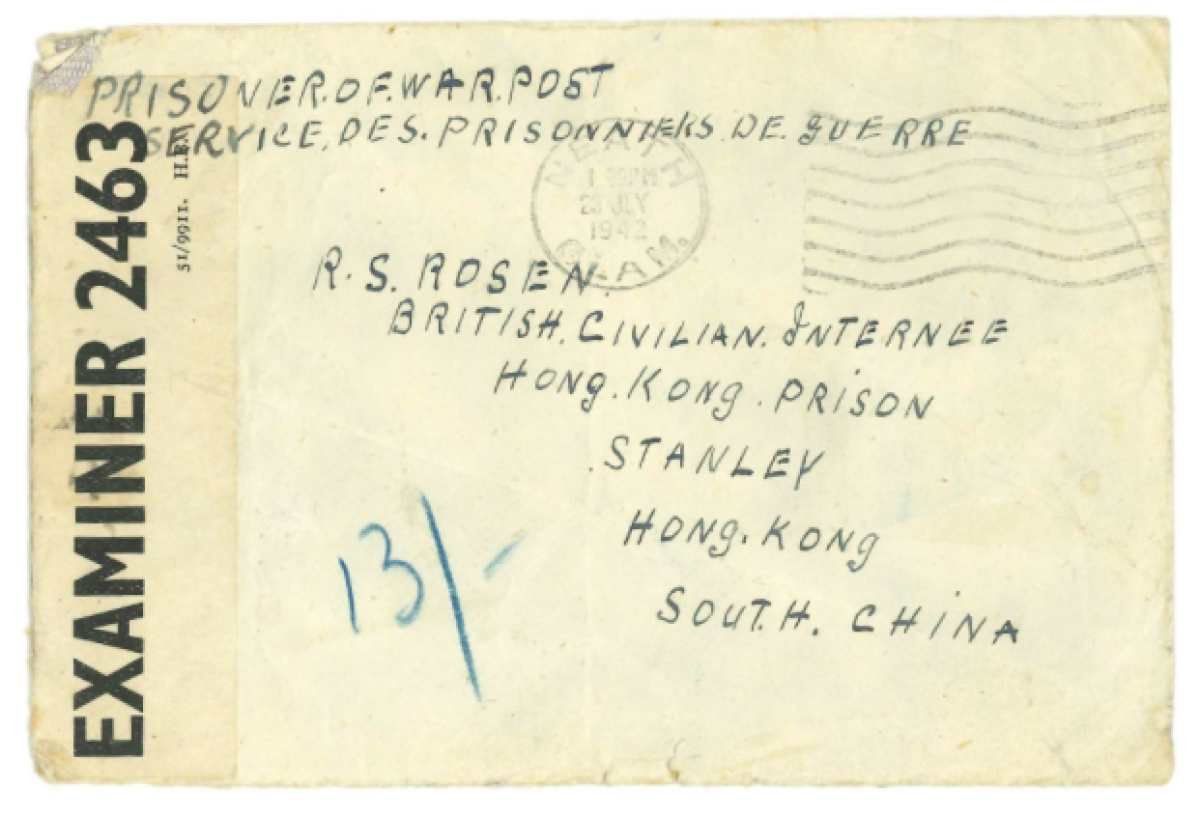 PRISONER.OF.WAR.POST
SERVICE.DES.PRISONNIERS.DE.GUERRE
NEATH
PM
JLY
1942
GLAM.
R.S. ROSEN.
BRITISH.CIVILIAN.INTERNEE
HONG.KONG.PRISON
STANLEY
HONG.KONG
SOUTH. CHINA
13/-
EXAMINER 2463
51/9911.